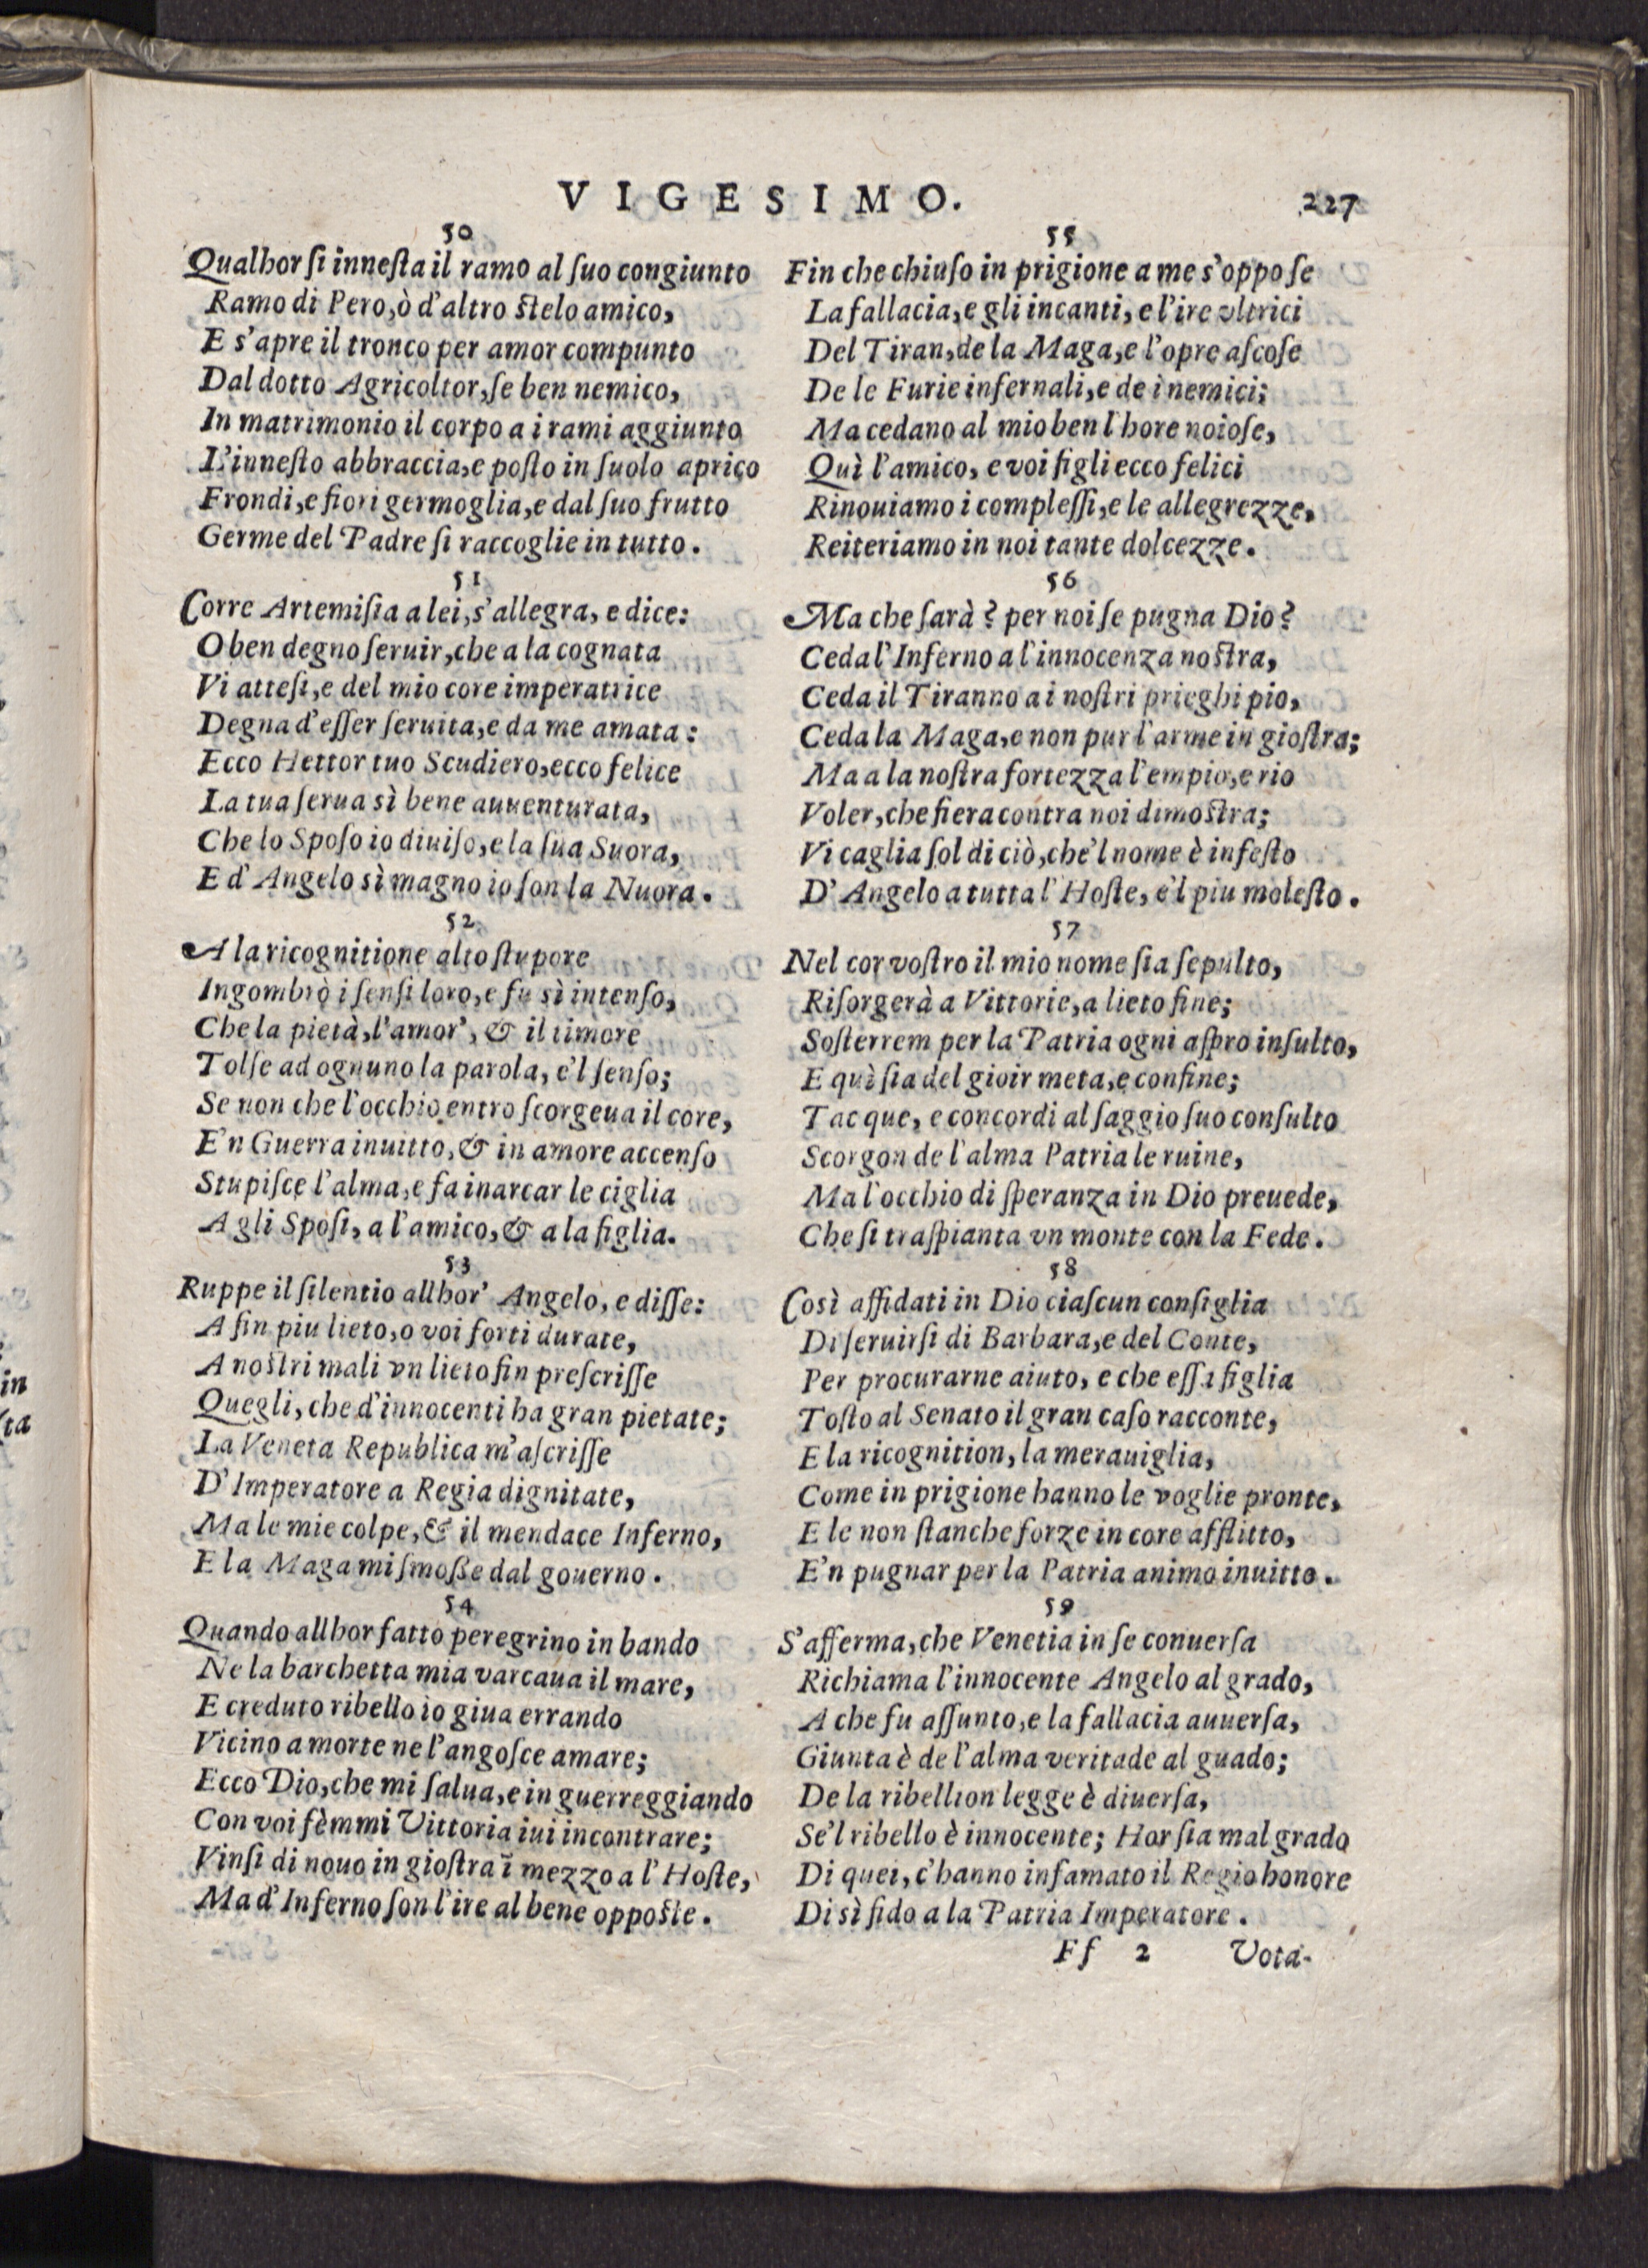 VIGESIMO.
227
50
Qualhor ſi inneſta il ramo al ſuo congiunto
Ramo di Pero, ò d'altro ſtelo amico,
E s'apre il tronco per amor compunto
Dal dotto Agricoltor, ſe ben nemico,
In matrimonio il corpo a i rami aggiunto
L'inneſto abbraccia, e poſto in ſuolo aprico
Frondi, e fiori germoglia, e dal ſuo frutto
Germe del Padre ſi raccoglie in tutto.
51
Corre Artemiſia a lei, s'allegra, e dice:
O ben degno ſeruir, che a la cognata
Vi atteſi, e del mio core imperatrice
Degna d'eſſer ſeruita, e da me amata:
Ecco Hettor tuo Scudiero, ecco felice
La tua ſerua sì bene auuenturata,
Che lo Spoſo io diuiſo, e la ſua Suora,
E d'Angelo sì magno io ſon la Nuora.
52
A la ricognitione alto ſtupore
Ingombrò i ſenſi loro, e fu sì intenſo,
Che la pietà, l'amor', & il timore
Tolſe ad ognuno la parola, e'l ſenſo;
Se non che l'occhio entro ſcorgeua il core,
E'n Guerra inuitto, & in amore accenſo
Stupiſce l'alma, e fa inarcar le ciglia
A gli Spoſi, a l'amico, & a la figlia.
53
Ruppe il ſilentio allhor' Angelo, e diſſe:
A fin piu lieto, o voi forti durate,
A noſtri mali vn lieto fin preſcriſſe
Quegli, che d'innocenti ha gran pietate;
La Veneta Republica m'aſcriſſe
D'Imperatore a Regia dignitate,
Ma le mie colpe, & il mendace Inferno,
E la Maga mi ſmoſſe dal gouerno.
54
Quando allhor fatto peregrino in bando
Ne la barchetta mia varcaua il mare,
E creduto ribello io giua errando
Vicino a morte ne l'angoſce amare;
Ecco Dio, che mi ſalua, e in guerreggiando
Con voi fèmmi Vittoria iui incontrare;
Vinſi di nouo in gioſtra ĩ mezzo a l'Hoſte,
Ma d'Inferno ſon l'ire al bene oppoſte.
55
Fin che chiuſo in prigione a me s'oppoſe
La fallacia, e gli incanti, e l'ire vltrici
Del Tiran, de la Maga, e l'opre aſcoſe
De le Furie infernali, e de i nemici;
Ma cedano al mio ben l'hore noioſe,
Quì l'amico, e voi figli ecco felici
Rinouiamo i compleſſi, e le allegrezze,
Reiteriamo in noi tante dolcezze.
56
Ma che ſarà? per noi ſe pugna Dio?
Ceda l'Inferno a l'innocenza noſtra,
Ceda il Tiranno a i noſtri prieghi pio,
Ceda la Maga, e non pur l'arme in gioſtra;
Ma a la noſtra fortezza l'empio, e rio
Voler, che fiera contra noi dimoſtra;
Vi caglia ſol di ciò, che'l nome è infeſto
D'Angelo a tutta l'Hoſte, e'l piu moleſto.
57
Nel cor voſtro il mio nome ſia ſepulto,
Riſorgerà a Vittorie, a lieto fine;
Soſterrem per la Patria ogni aſpro inſulto,
E quì ſia del gioir meta, e confine;
Tacque, e concordi al ſaggio ſuo conſulto
Scorgon de l'alma Patria le ruine,
Ma l'occhio di ſperanza in Dio preuede,
Che ſi traſpianta vn monte con la Fede.
58
Così affidati in Dio ciaſcun conſiglia
Di ſeruirſi di Barbara, e del Conte,
Per procurarne aiuto, e che eſſa figlia
Toſto al Senato il gran caſo racconte,
E la ricognition, la merauiglia,
Come in prigione hanno le voglie pronte,
E le non ſtanche forze in core afflitto,
E'n pugnar per la Patria animo inuitto.
59
S'afferma, che Venetia in ſe conuerſa
Richiama l'innocente Angelo al grado,
A che fu aſſunto, e la fallacia auuerſa,
Giunta è de l'alma veritade al guado;
De la ribellion legge è diuerſa,
Se'l ribello è innocente; Hor ſia mal grado
Di quei, c'hanno infamato il Regio honore
Di sì fido a la Patria Imperatore.
Ff 2 Vota-
in
ta